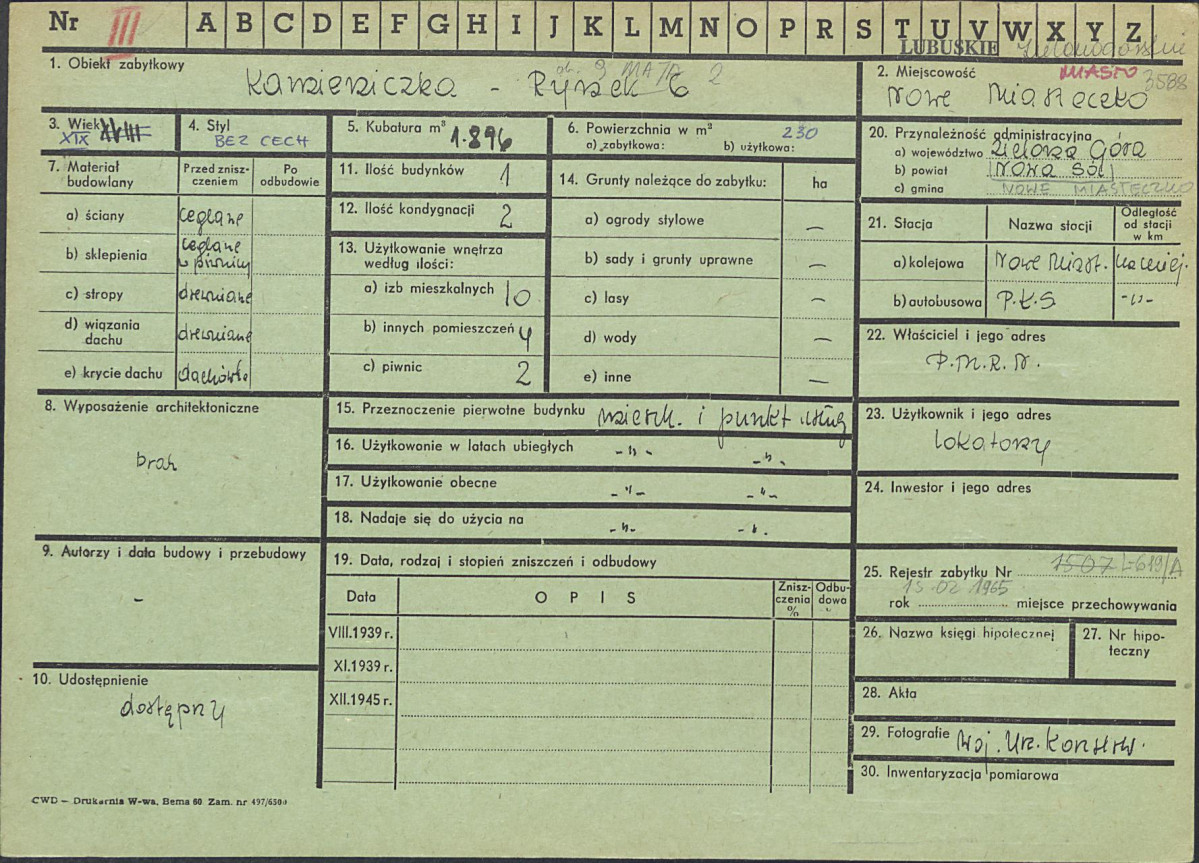 Nr III A B C D E F G H I J K L M N O P R S T U V W X Y Z
LUBUSKIE Zielonogórskie
1. Obiekt zabytkowy
Kamieniczka - Rynek 6
2. Miejscowość MIASTO 3588
Nowe Miasteczko
3. Wiek XVIII XIX
4. Styl
BEZ CECH
5. Kubatura m³
1.896
6. Powierzchnia w m² 230
a) zabytkowa: b) użytkowa:
20. Przynależność administracyjna
a) województwo Zielona Góra
b) powiat Nowa Sól
c) gmina NOWE MIASTECZKO
7. Materiał budowlany
Przed zniszczeniem
Po odbudowie
a) ściany ceglane
b) sklepienia ceglane w piwnicy
c) stropy drewniane
d) wiązania dachu drewniane
e) krycie dachu dachówka
11. Ilość budynków 1
12. Ilość kondygnacji 2
13. Użytkowanie wnętrza według ilości:
a) izb mieszkalnych 10
b) innych pomieszczeń 4
c) piwnic 2
14. Grunty należące do zabytku: ha
a) ogrody stylowe —
b) sady i grunty uprawne —
c) lasy —
d) wody —
e) inne —
21. Stacja
Nazwa stacji
Odległość od stacji w km
a) kolejowa Nowe Miast. na miej.
b) autobusowa P.K.S -"-
22. Właściciel i jego adres
P.M.R.N.
8. Wyposażenie architektoniczne
brak
15. Przeznaczenie pierwotne budynku mieszk. i punkt usług
16. Użytkowanie w latach ubiegłych -"- -"-
17. Użytkowanie obecne -"- -"-
18. Nadaje się do użycia na -"- -"-
23. Użytkownik i jego adres
lokatorzy
24. Inwestor i jego adres
9. Autorzy i data budowy i przebudowy
-
19. Data, rodzaj i stopień zniszczeń i odbudowy
Data
OPIS
Zniszczenia %
Odbudowa %
VIII.1939 r.
XI.1939 r.
XII.1945 r.
25. Rejestr zabytku Nr 1507 L-619/A
15 02 1965
rok miejsce przechowywania
26. Nazwa księgi hipotecznej
27. Nr hipoteczny
10. Udostępnienie
dostępny
28. Akta
29. Fotografie Woj. Urz. Konserw.
30. Inwentaryzacja pomiarowa
CWD — Drukarnia W-wa, Bema 60 Zam. nr 497/6500